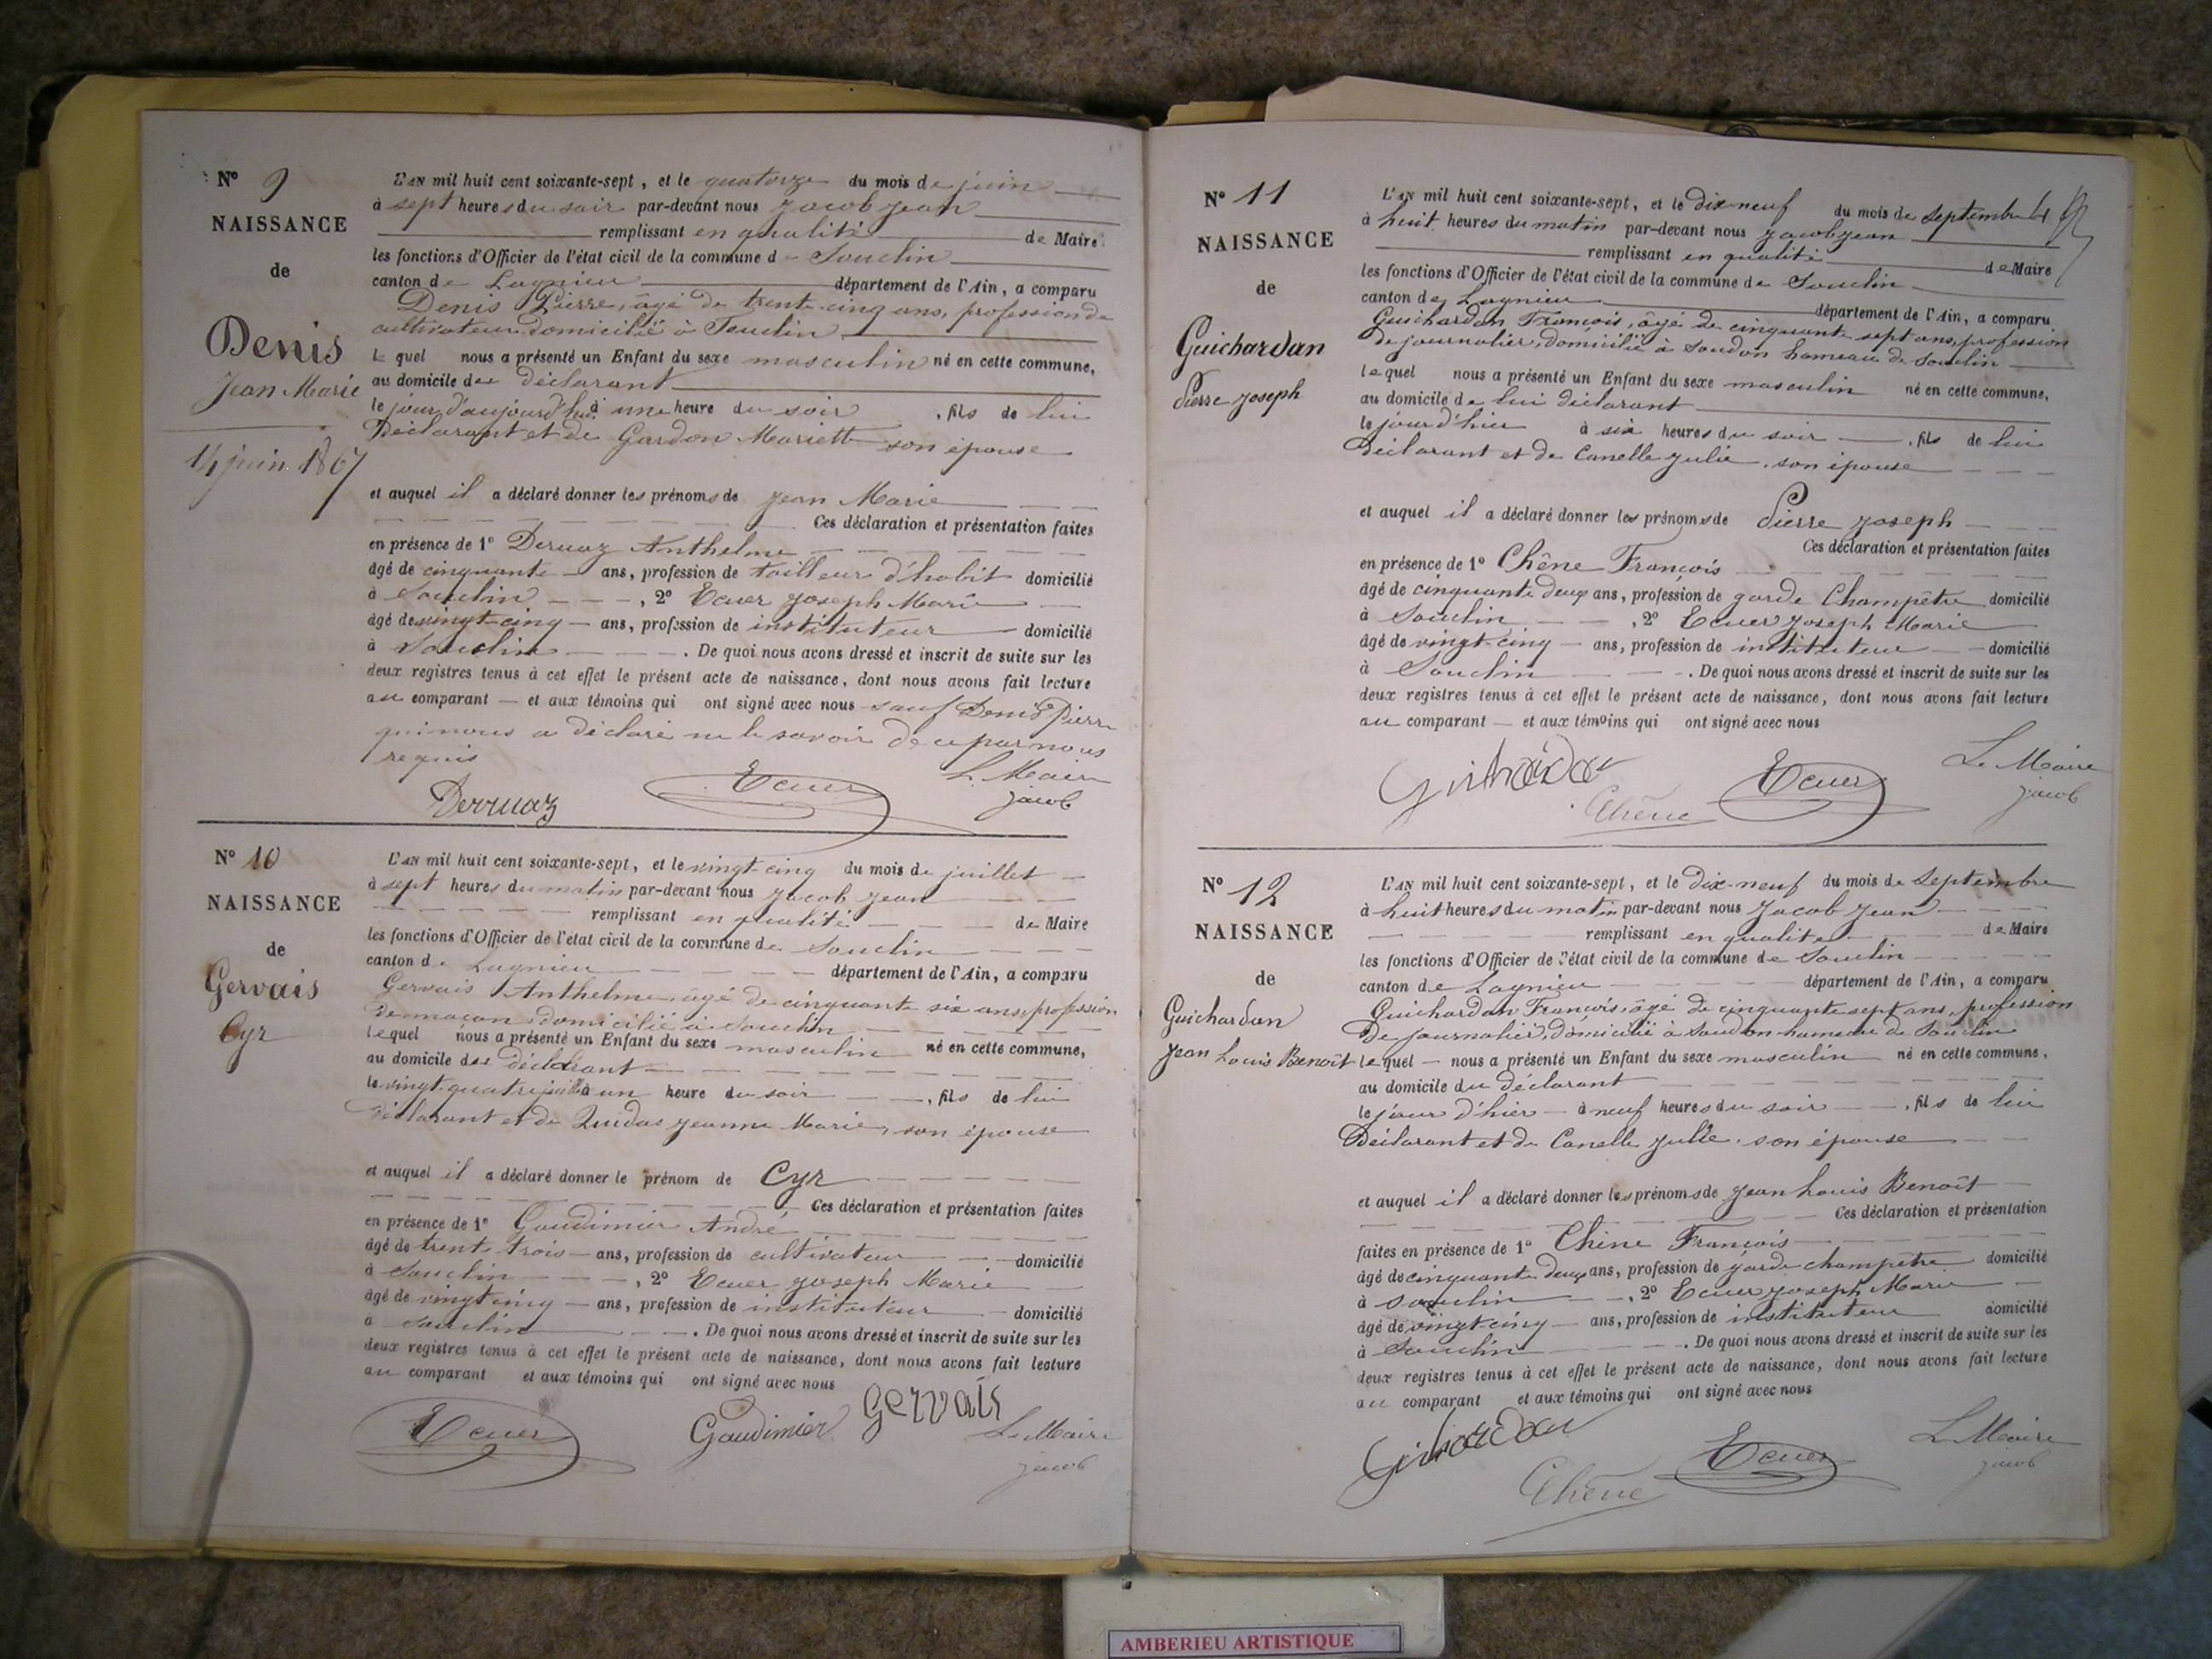 N° 9
NAISSANCE
de
Denis
Jean Marie
14 juin 1867
L'AN mil huit cent soixante-sept, et le quatorze du mois de juin
à sept heures du soir par-devant nous Jacob Jean
remplissant en qualité de Maire
les fonctions d'Officier de l'état civil de la commune d Souclin
canton de Lagnieu département de l'Ain, a comparu
Denis Pierre, âgé de trente cinq ans, profession de
cultivateur domicilié à Souclin
le quel nous a présenté un Enfant du sexe masculin né en cette commune,
au domicile du déclarant
le jour d'aujourd'hui à une heure du soir, fils de lui
Déclarant et de Gardon Mariette son épouse
et auquel il a déclaré donner les prénoms de Jean Marie
Ces déclaration et présentation faites
en présence de 1° Derruaz Anthelme
âgé de cinquante ans, profession de tailleur d'habit domicilié
à Souclin, 2° Ecuer Joseph Marie
âgé de vingt-cinq ans, profession de instituteur domicilié
à Souclin. De quoi nous avons dressé et inscrit de suite sur les
deux registres tenus à cet effet le présent acte de naissance, dont nous avons fait lecture
au comparant et aux témoins qui ont signé avec nous sauf Denis Pierre
qui nous a déclaré ne le savoir de ce par nous
requis
Derruaz Ecuer Le Maire
Jacob
N° 10
NAISSANCE
de
Gervais
Cyr
L'AN mil huit cent soixante-sept, et le vingt-cinq du mois de juillet
à sept heures du matin par-devant nous Jacob Jean
remplissant en qualité de Maire
les fonctions d'Officier de l'état civil de la commune de Souclin
canton de Lagnieu département de l'Ain, a comparu
Gervais Anthelme, âgé de cinquante six ans, profession
de maçon, domicilié à Souclin
lequel nous a présenté un Enfant du sexe masculin né en cette commune,
au domicile du déclarant
le vingt-quatre juillet à un heure du soir, fils de lui
déclarant et de Jeanne Marie, son épouse
et auquel il a déclaré donner le prénom de Cyr
Ces déclaration et présentation faites
en présence de 1° Gaudimier André
âgé de trente trois ans, profession de cultivateur domicilié
à Souclin, 2° Ecuer Joseph Marie
âgé de vingt cinq ans, profession de instituteur domicilié
à Souclin. De quoi nous avons dressé et inscrit de suite sur les
deux registres tenus à cet effet le présent acte de naissance, dont nous avons fait lecture
au comparant et aux témoins qui ont signé avec nous
Ecuer Gaudimier Gervais Le Maire
Jacob
N° 11
NAISSANCE
de
Guichardan
Pierre Joseph
L'AN mil huit cent soixante-sept, et le dix-neuf du mois de Septembre
à huit heures du matin par-devant nous Jacob Jean
remplissant en qualité de Maire
les fonctions d'Officier de l'état civil de la commune de Souclin
canton de Lagnieu département de l'Ain, a comparu
Guichardan François, âgé de cinquante sept ans, profession
de journalier, domicilié à Soudon hameau de Souclin
lequel nous a présenté un Enfant du sexe masculin né en cette commune,
au domicile de lui déclarant
le jour d'hier à six heures du soir, fils de lui
Déclarant et de Canelle Julie, son épouse
et auquel il a déclaré donner les prénoms de Pierre Joseph
Ces déclaration et présentation faites
en présence de 1° Chêne François
âgé de cinquante deux ans, profession de garde Champêtre domicilié
à Souclin, 2° Ecuer Joseph Marie
âgé de vingt-cinq ans, profession de instituteur domicilié
à Souclin. De quoi nous avons dressé et inscrit de suite sur les
deux registres tenus à cet effet le présent acte de naissance, dont nous avons fait lecture
au comparant et aux témoins qui ont signé avec nous
Chêne Ecuer Le Maire
Jacob
N° 12
NAISSANCE
de
Guichardan
Jean Louis Benoît
L'AN mil huit cent soixante-sept, et le dix-neuf du mois de Septembre
à huit heures du matin par-devant nous Jacob Jean
remplissant en qualité de Maire
les fonctions d'Officier de l'état civil de la commune de Souclin
canton de Lagnieu département de l'Ain, a comparu
Guichardan François, âgé de cinquante sept ans, profession
De journalier, domicilié à Soudon hameau de Souclin
lequel nous a présenté un Enfant du sexe masculin né en cette commune,
au domicile du déclarant
le jour d'hier à neuf heures du soir, fils de lui
Déclarant et de Canelle Julie, son épouse
et auquel il a déclaré donner les prénoms de Jean Louis Benoît
Ces déclaration et présentation
faites en présence de 1° Chêne François
âgé de cinquante deux ans, profession de garde champêtre domicilié
à Souclin, 2° Ecuer Joseph Marie
âgé de vingt-cinq ans, profession de instituteur domicilié
à Souclin. De quoi nous avons dressé et inscrit de suite sur les
deux registres tenus à cet effet le présent acte de naissance, dont nous avons fait lecture
au comparant et aux témoins qui ont signé avec nous
Chêne Ecuer Le Maire
Jacob
AMBERIEU ARTISTIQUE